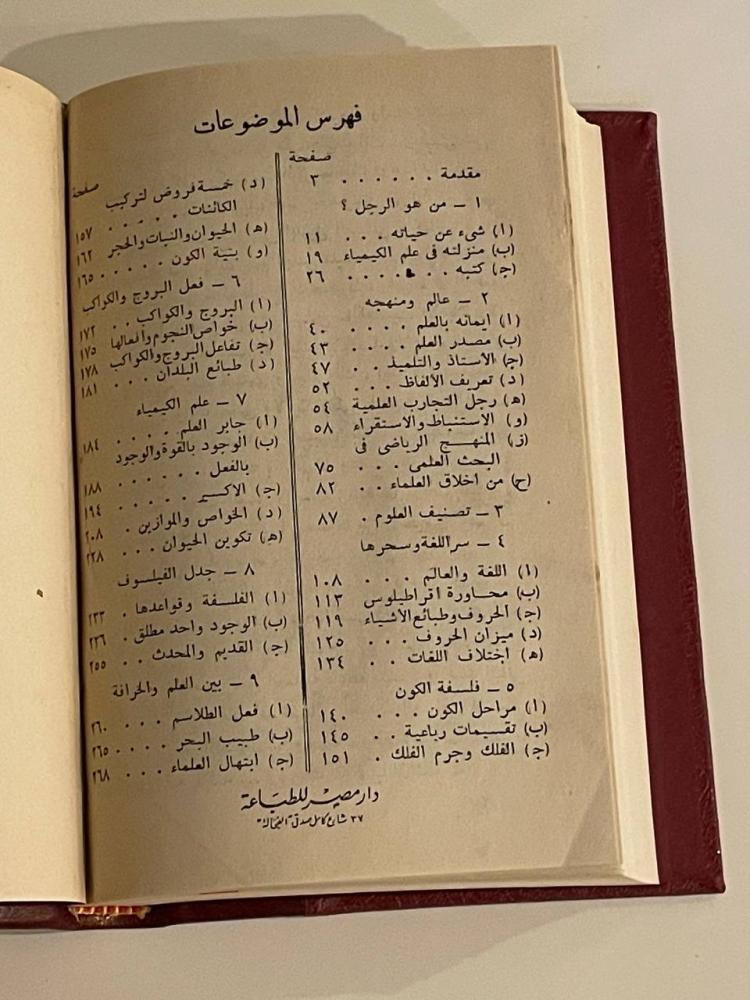 فهرس الموضوعات
صفحة
مقدمة . . . . . . ٣
١ ــ من هو الرجل ؟
(ا) شىء عن حياته . . . ١١
(ب) منزلته فى علم الكيمياء ١٩
(ج) كتبه . . . . . ٢٦
٢ ــ عالم ومنهجه
(ا) ايمانه بالعلم . . . . ٤٠
(ب) مصدر العلم . . . . ٤٣
(ج) الأستاذ والتلميذ . . ٤٧
(د) تعريف الألفاظ . . . ٥٢
(ه) رجل التجارب العلمية ٥٤
(و) الاستنباط والاستقراء ٥٨
(ز) المنهج الرياضى فى
البحث العلمى . . . ٧٥
(ح) من أخلاق العلماء . . ٨٢
٣ ــ تصنيف العلوم . ٨٧
٤ ــ سر اللغة وسحرها
(ا) اللغة والعالم . . . ١٠٨
(ب) محاورة أقراطيلوس ١١٣
(ج) الحروف وطبائع الأشياء ١١٩
(د) ميزان الحروف . . . ١٢٥
(ه) اختلاف اللغات . . ١٣٤
٥ ــ فلسفة الكون
(ا) مراحل الكون . . . ١٤٠
(ب) تقسيمات رباعية . . ١٤٥
(ج) الفلك وجرم الفلك . ١٥١
صفحة
(د) خمسة فروض لتركيب
الكائنات . . . . . ١٥٧
(ه) الحيوان والنبات والحجر ١٦٢
(و) بنية الكون . . . . . ١٦٥
٦ ــ فعل البروج والكواكب
(ا) البروج والكواكب . . ١٧٢
(ب) خواص النجوم وأفعالها ١٧٥
(ج) تفاعل البروج والكواكب ١٧٨
(د) طبائع البلدان . . . ١٨١
٧ ــ علم الكيمياء
(ا) جابر العلم . . . . ١٨٤
(ب) الوجود بالقوة والوجود
بالفعل . . . . . . ١٨٨
(ج) الاكسير . . . . . ١٩٤
(د) الخواص والموازين . ٢٠٨
(ه) تكوين الحيوان . . . ٢٢٨
٨ ــ جدل الفيلسوف
(ا) الفلسفة وقواعدها . ٢٣٣
(ب) الوجود واحد مطلق . ٢٣٦
(ج) القديم والمحدث . . ٢٥٥
٩ ــ بين العلم والخرافة
(ا) فعل الطلاسم . . . ٢٦٠
(ب) طبيب البحر . . . . ٢٦٥
(ج) ابتهال العلماء . . . ٢٦٨
دار مصر للطباعة
٣٧ شارع كامل صدقى الفجالة